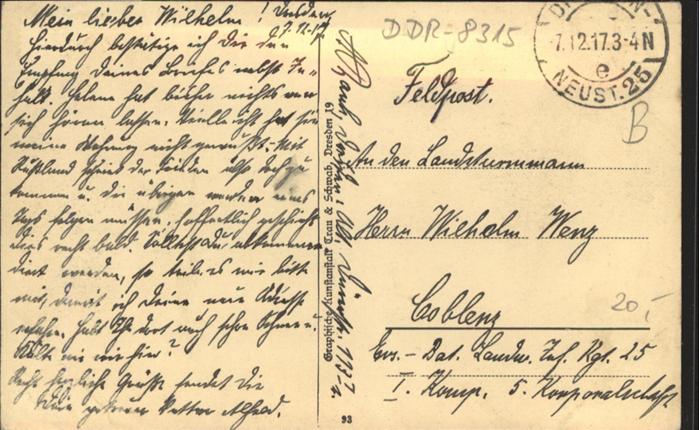 Mein lieber Wilhelm! Dresden,
7.12.17
Hierdurch bestätige ich Dir den
Empfang Deines Briefes nebst In-
halt. Helene hat bisher nichts von
sich hören lassen. Vielleicht hat sie
meine Wohnung nicht gewußt. Mit
Rußland scheint der Frieden also doch zu
kommen u. die übrigen werden eines
Tags folgen müssen, hoffentlich geschieht
dies recht bald. Solltest Du abkommandiert
werden, so teile es mir bitte
mit, damit ich Deine neue Adresse
erfahre. Habt Ihr dort auch schon Schnee u.
Kälte wie wir hier?
Recht herzliche Grüße sendet Dir
Dein getreuer Vetter Alfred.
Dresden
Graphische Kunstanstalt Trau & Schwab, Dresden 19
93
DDR-8315
-7.12.17.3-4N
e
NEUST. 25
B
Feldpost.
An den Landsturmmann
Herrn Wilhelm Wenz
Coblenz
20,-
Ers.- Bat. Landw. Inf. Rgt. 25
I. Komp. 5. Korporalschaft